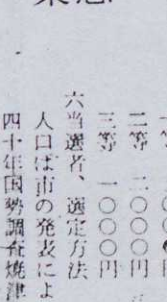 二等 二〇〇〇円
三等 一〇〇〇円
六当選者、選定方法
人口は市の発表によ
四十年国勢調査焼津